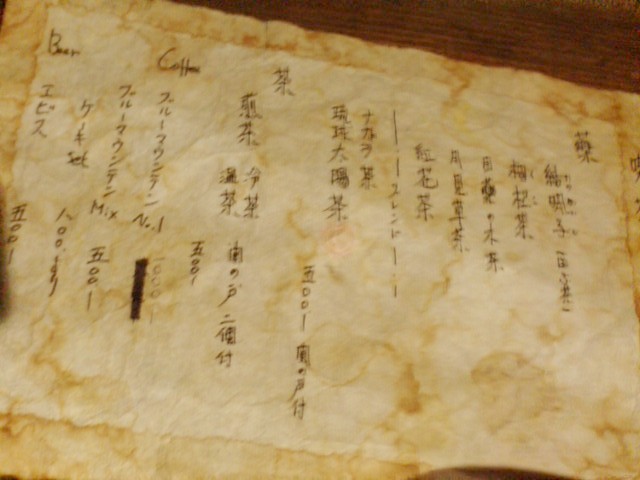 薬
枸杞茶
目薬の木茶
月見草茶
紅花茶
ーーブレンドーー
ナカラ茶
琉球太陽茶
五〇〇ー 寅の戸付
茶
煎茶 冷茶
温茶 寅の戸 二個付
五〇〇ー
Coffee
ブルーマウンテン No.1
ブルーマウンテン Mix 五〇〇ー
ケーキ set 八〇〇より
Beer
エビス 五〇〇ー